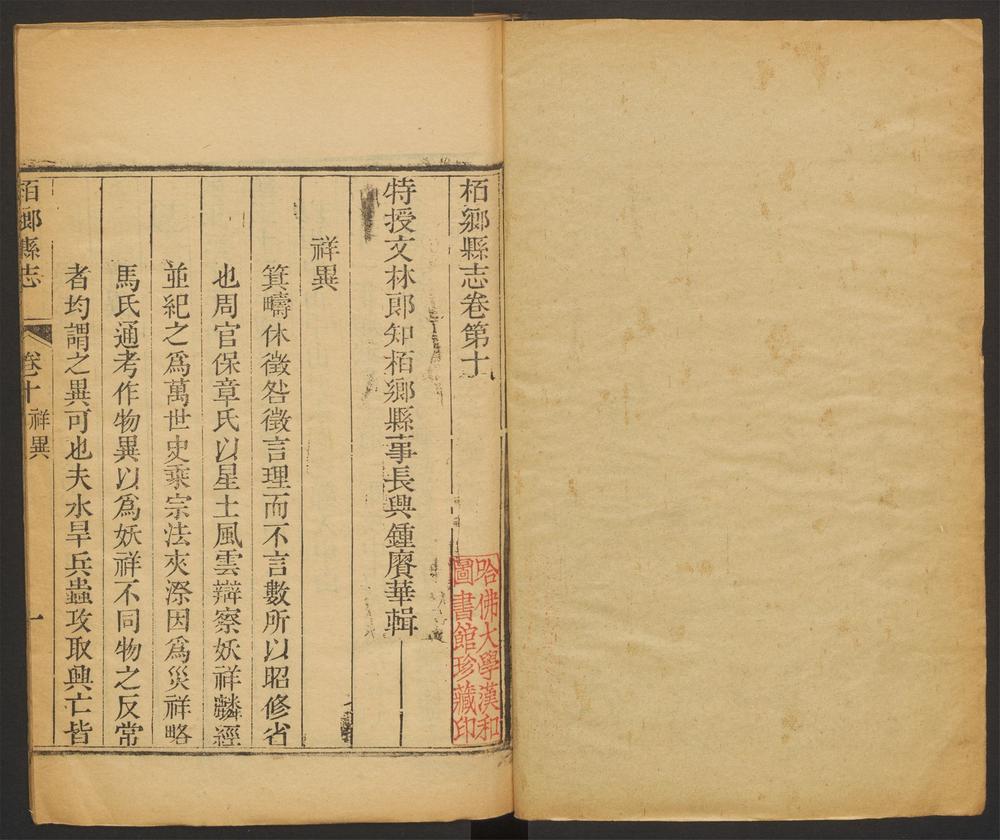 栢鄉縣志卷第十
哈佛大學漢和
圖書館珍藏印
特授文林郎知栢鄉縣事長興鍾賡華輯
祥異
箕疇休徵咎徵言理而不言數所以昭修省
也周官保章氏以星土風雲辯察妖祥麟經
並紀之爲萬世史乘宗法夾漈因爲災祥略
馬氏通考作物異以爲妖祥不同物之反常
者均謂之異可也夫水旱兵蟲攻取興亡皆
栢鄉縣志
卷十
祥異
一